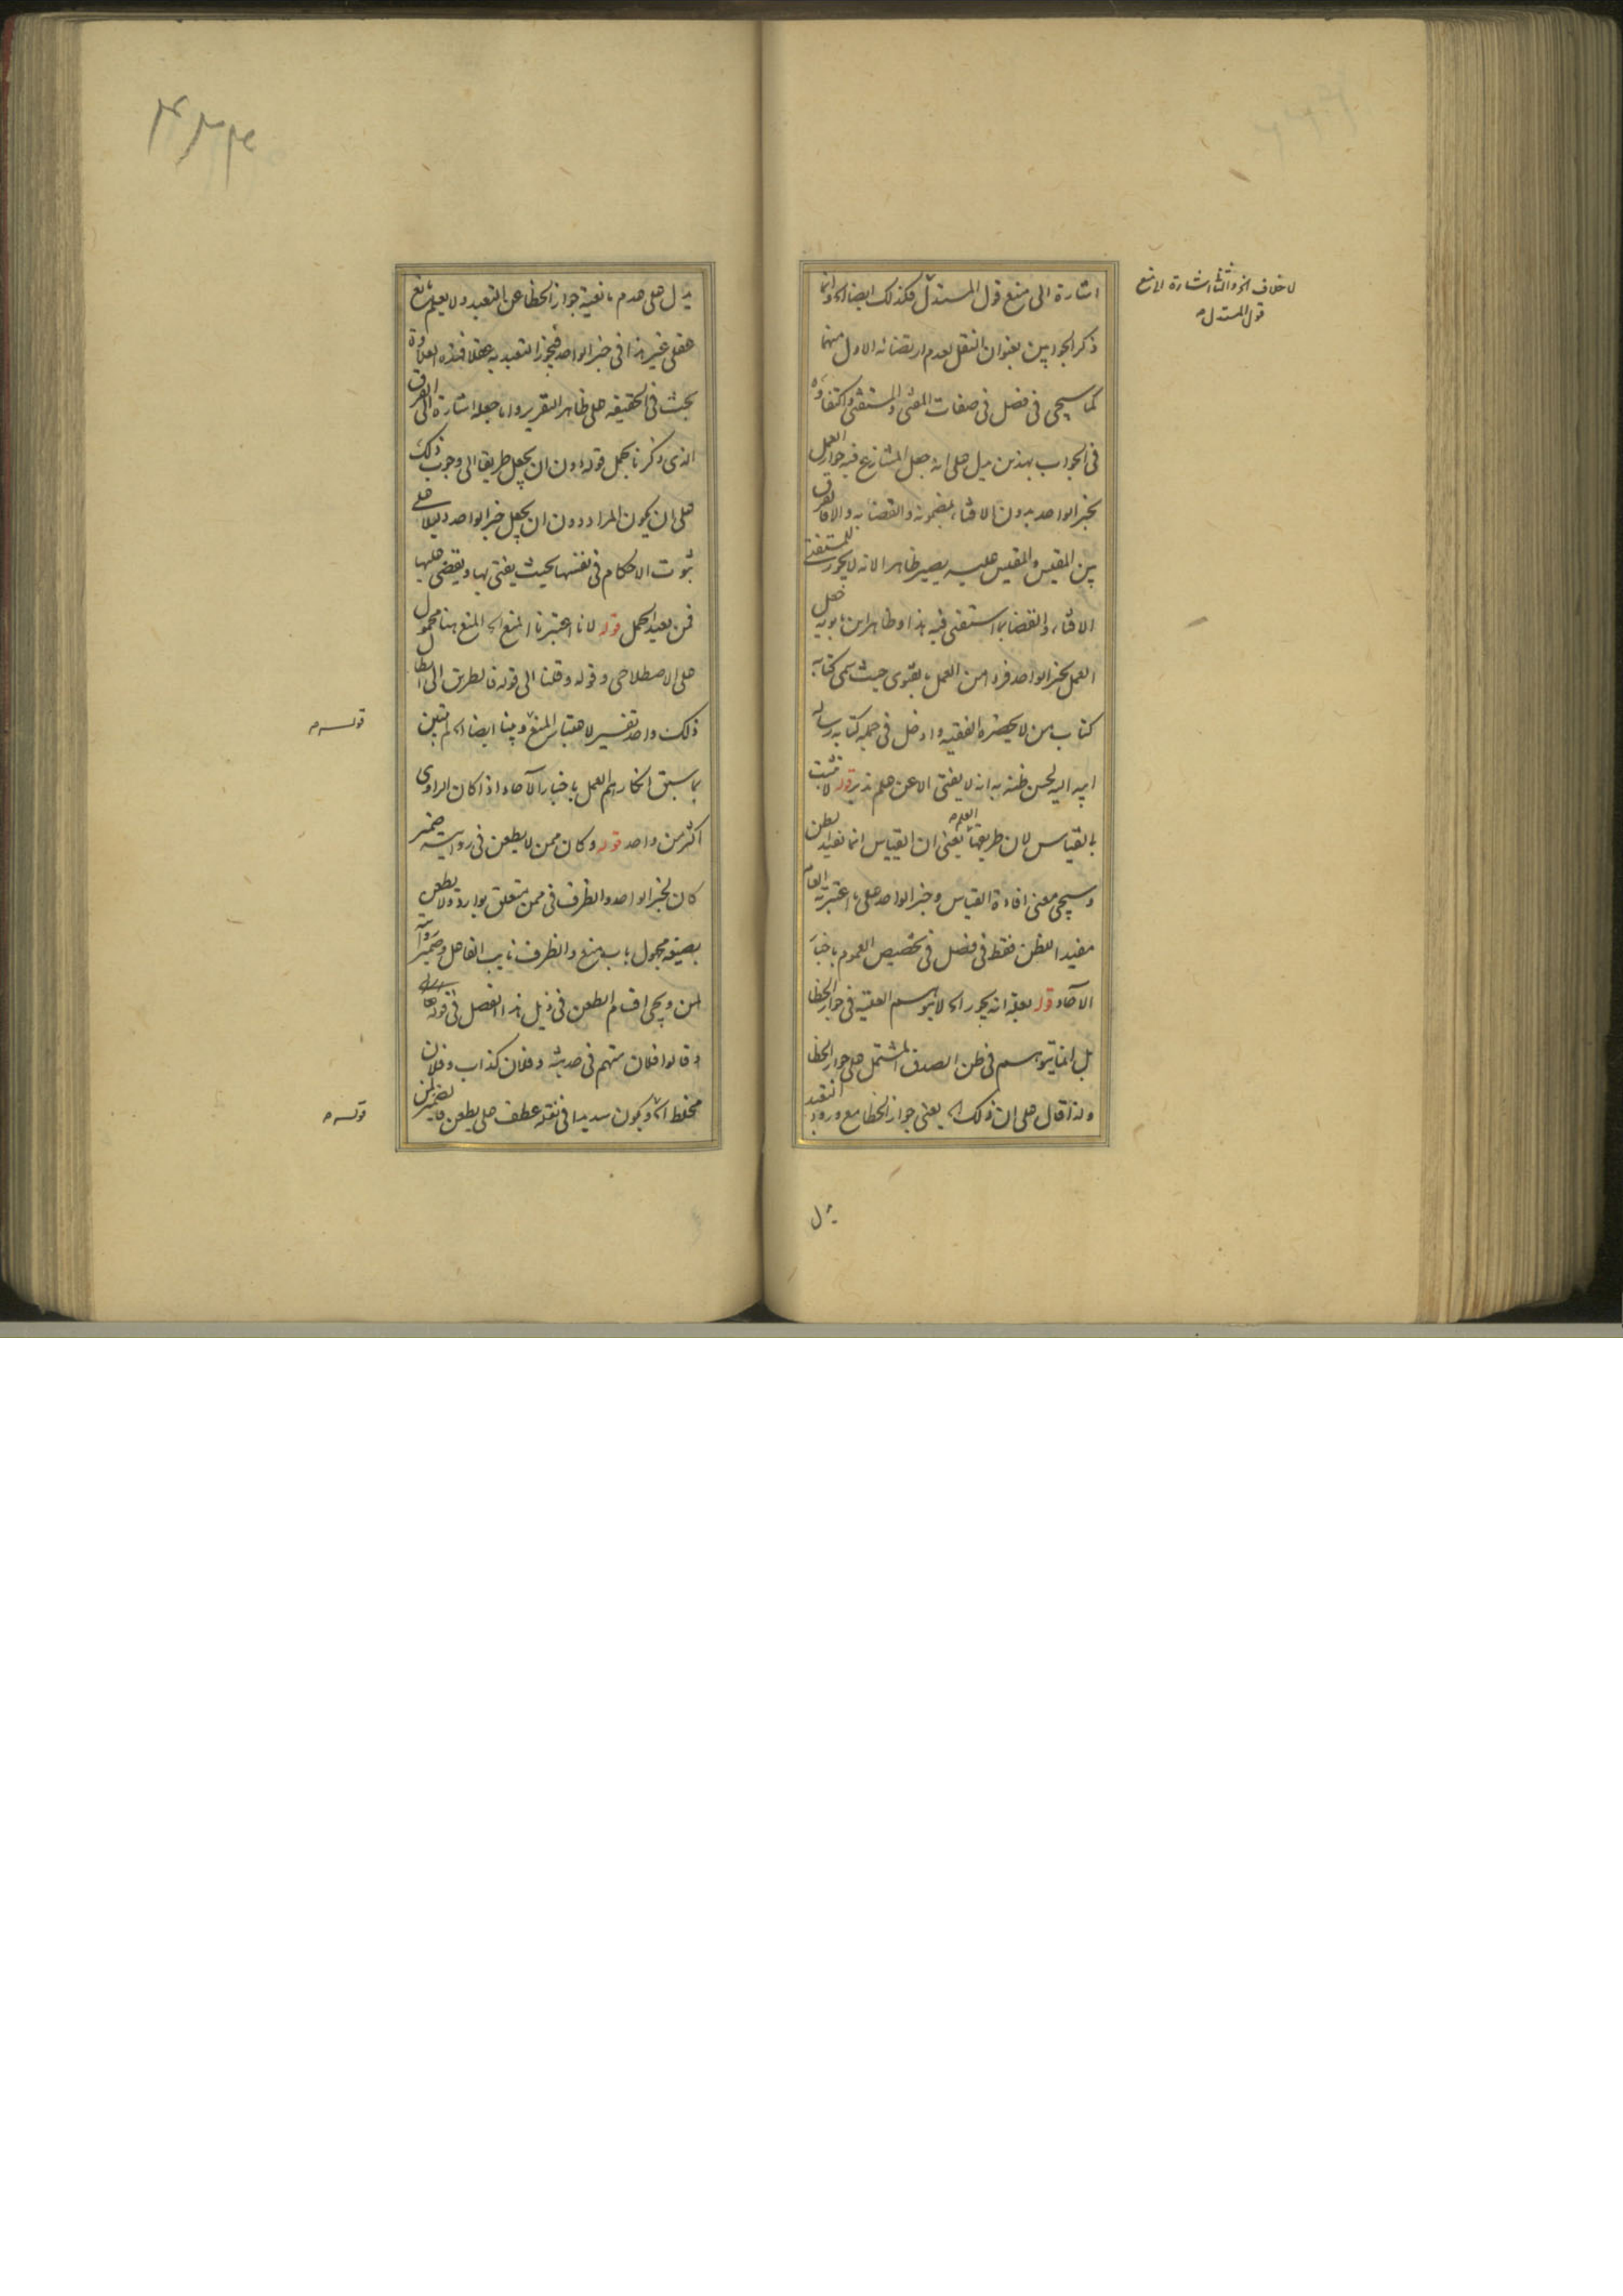 اشارة الى منع قول المستدل فكذلك ايضا اه وانما
ذكر الجوابين بعنوان النقل لعدم ارتضائه الاول منهما
كما سيجى فى فصل فى صفات المفتى والمستفتى واكتفاؤه
فى الجواب بهذين يدل على انه جعل المتنازع فيه جواز العمل
بخبر الواحد بدون الافتاء بمضمونه والقضا به والا فالفرق
بين المقيس والمقيس عليه يصير ظاهرا لانه لا يجوز للمستفتى
الافتاء والقضا بما استفتى فيه هذا وظاهر ابن بابويه جعل
العمل بخبر الواحد فردا من العمل بالفتوى حيث سمى كتابه
كتاب من لا يحضره الفقيه وادخل فى جملة كتابه رسالة
ابيه اليه لحسن ظنه به انه لا يفتى الا عن علم تدبر قوله لا تثبت
بالقياس لان طريقها العلم يعنى ان القياس انما يفيد الظن
وسيجى معنى افادة القياس وخبر الواحد على ما اعتبرته العامة
مفيدا للظن فقط فى فصل فى تخصيص العموم باخبار
الآحاد قوله بعلة انه يجوز اه لا يتوهم العلية فى جواز الخطا
بل انما يتوهم فى ظن الصدق المشتمل على جواز الخطا
ولذا قال على ان ذلك اه يعنى جواز الخطا مع ورود التعبد
لا خلاف
قول المستدل
يدل
يدل على عدم مانعية جواز الخطا عن التعبد ولا يعلم مانع
عقلى غير هذا فى خبر الواحد فيجوز التعبد به عقلا فهذه العلاوة
بحث فى الحقيقه على ظاهر التقرير وانما جعله اشارة الى الفرق
الذى ذكرنا بحمل قوله دون ان يجعل طريقا الى وجوب ذلك
على ان يكون المراد دون ان يجعل خبر الواحد دليلا على
ثبوت الاحكام فى نفسها بحيث يفتى بها ويقضى عليها
فمن بعيد الحمل قوله لانا اعتبرنا المنع اه المنع هنا محمول
على الاصطلاحى وقوله وقلنا الى قوله فالطريق الى ابطال
ذلك واحد تفسير لاعتبار المنع وبينا ايضا اه لم يتبين
بما سبق انكارهم العمل باخبار الآحاد اذا كان الراوى
اكثر من واحد قوله وكان ممن لا يطعن فى روايته ضمير
كان لخبر الواحد والظرف فى ممن متعلق بوارد ولا يطعن
بصيغه مجهول باب منع والظرف نايب الفاعل وضمير روايته
لمن ويجى اقسام الطعن فى ذيل هذا الفصل فى قوله
وقالوا فلان متهم فى حديثه وفلان كذاب وفلان
مخلط اه ويكون سديدا فى نقله عطف على يطعن فالضمير لمن
قوله
قوله